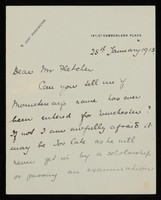 14, GT CUMBERLAND PLACE.
25th January 1913
Dear Mr Fletcher
Can you tell me if
name has ever
been entered for Winchester?
If not I am awfully afraid it
may be too late as he will
never get in by a scholarship
or passing an examination